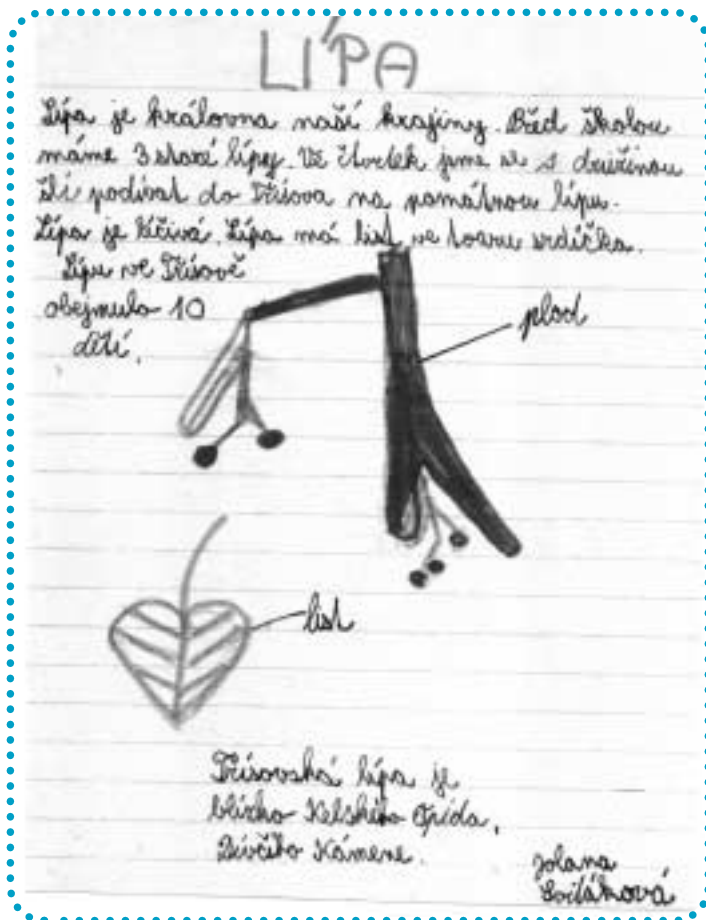 LÍPA
Lípa je královna naší krajiny. Před školou
máme 3 staré lípy. Ve čtvrtek jsme se s družinou
šli podívat do Třísova na památnou lípu.
Lípa je léčivá. Lípa má list ve tvaru srdíčka.
Lípu ve Třísově
objmulo 10
dětí.
plod
list
Třísovská lípa je
blízko Kelského Opida,
Dívčího Kámene.
Jolana